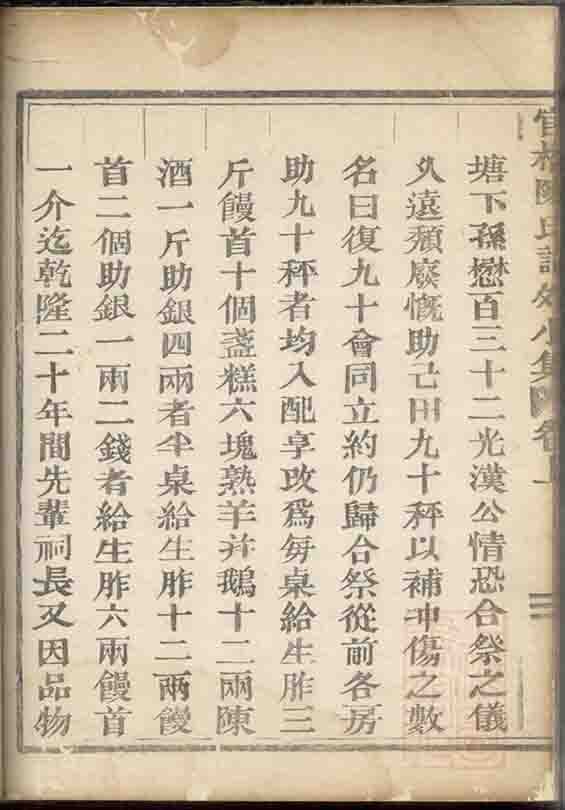 陳氏外小集卷
塘下孫懋百三十二光漢公情恐合祭之儀
久遠頹廢慨助己田九十秤以補冲傷之數
名曰復九十會同立約仍歸合祭從前各房
助九十秤者均入配享改爲毎桌給生胙三
斤饅首十個盞糕六塊熟羊并鵝十二兩陳
酒一斤助銀四兩者半桌給生胙十二兩饅
首二個助銀一兩二錢者給生胙六兩饅首
一介迄乾隆二十年間先輩祠長又因品物